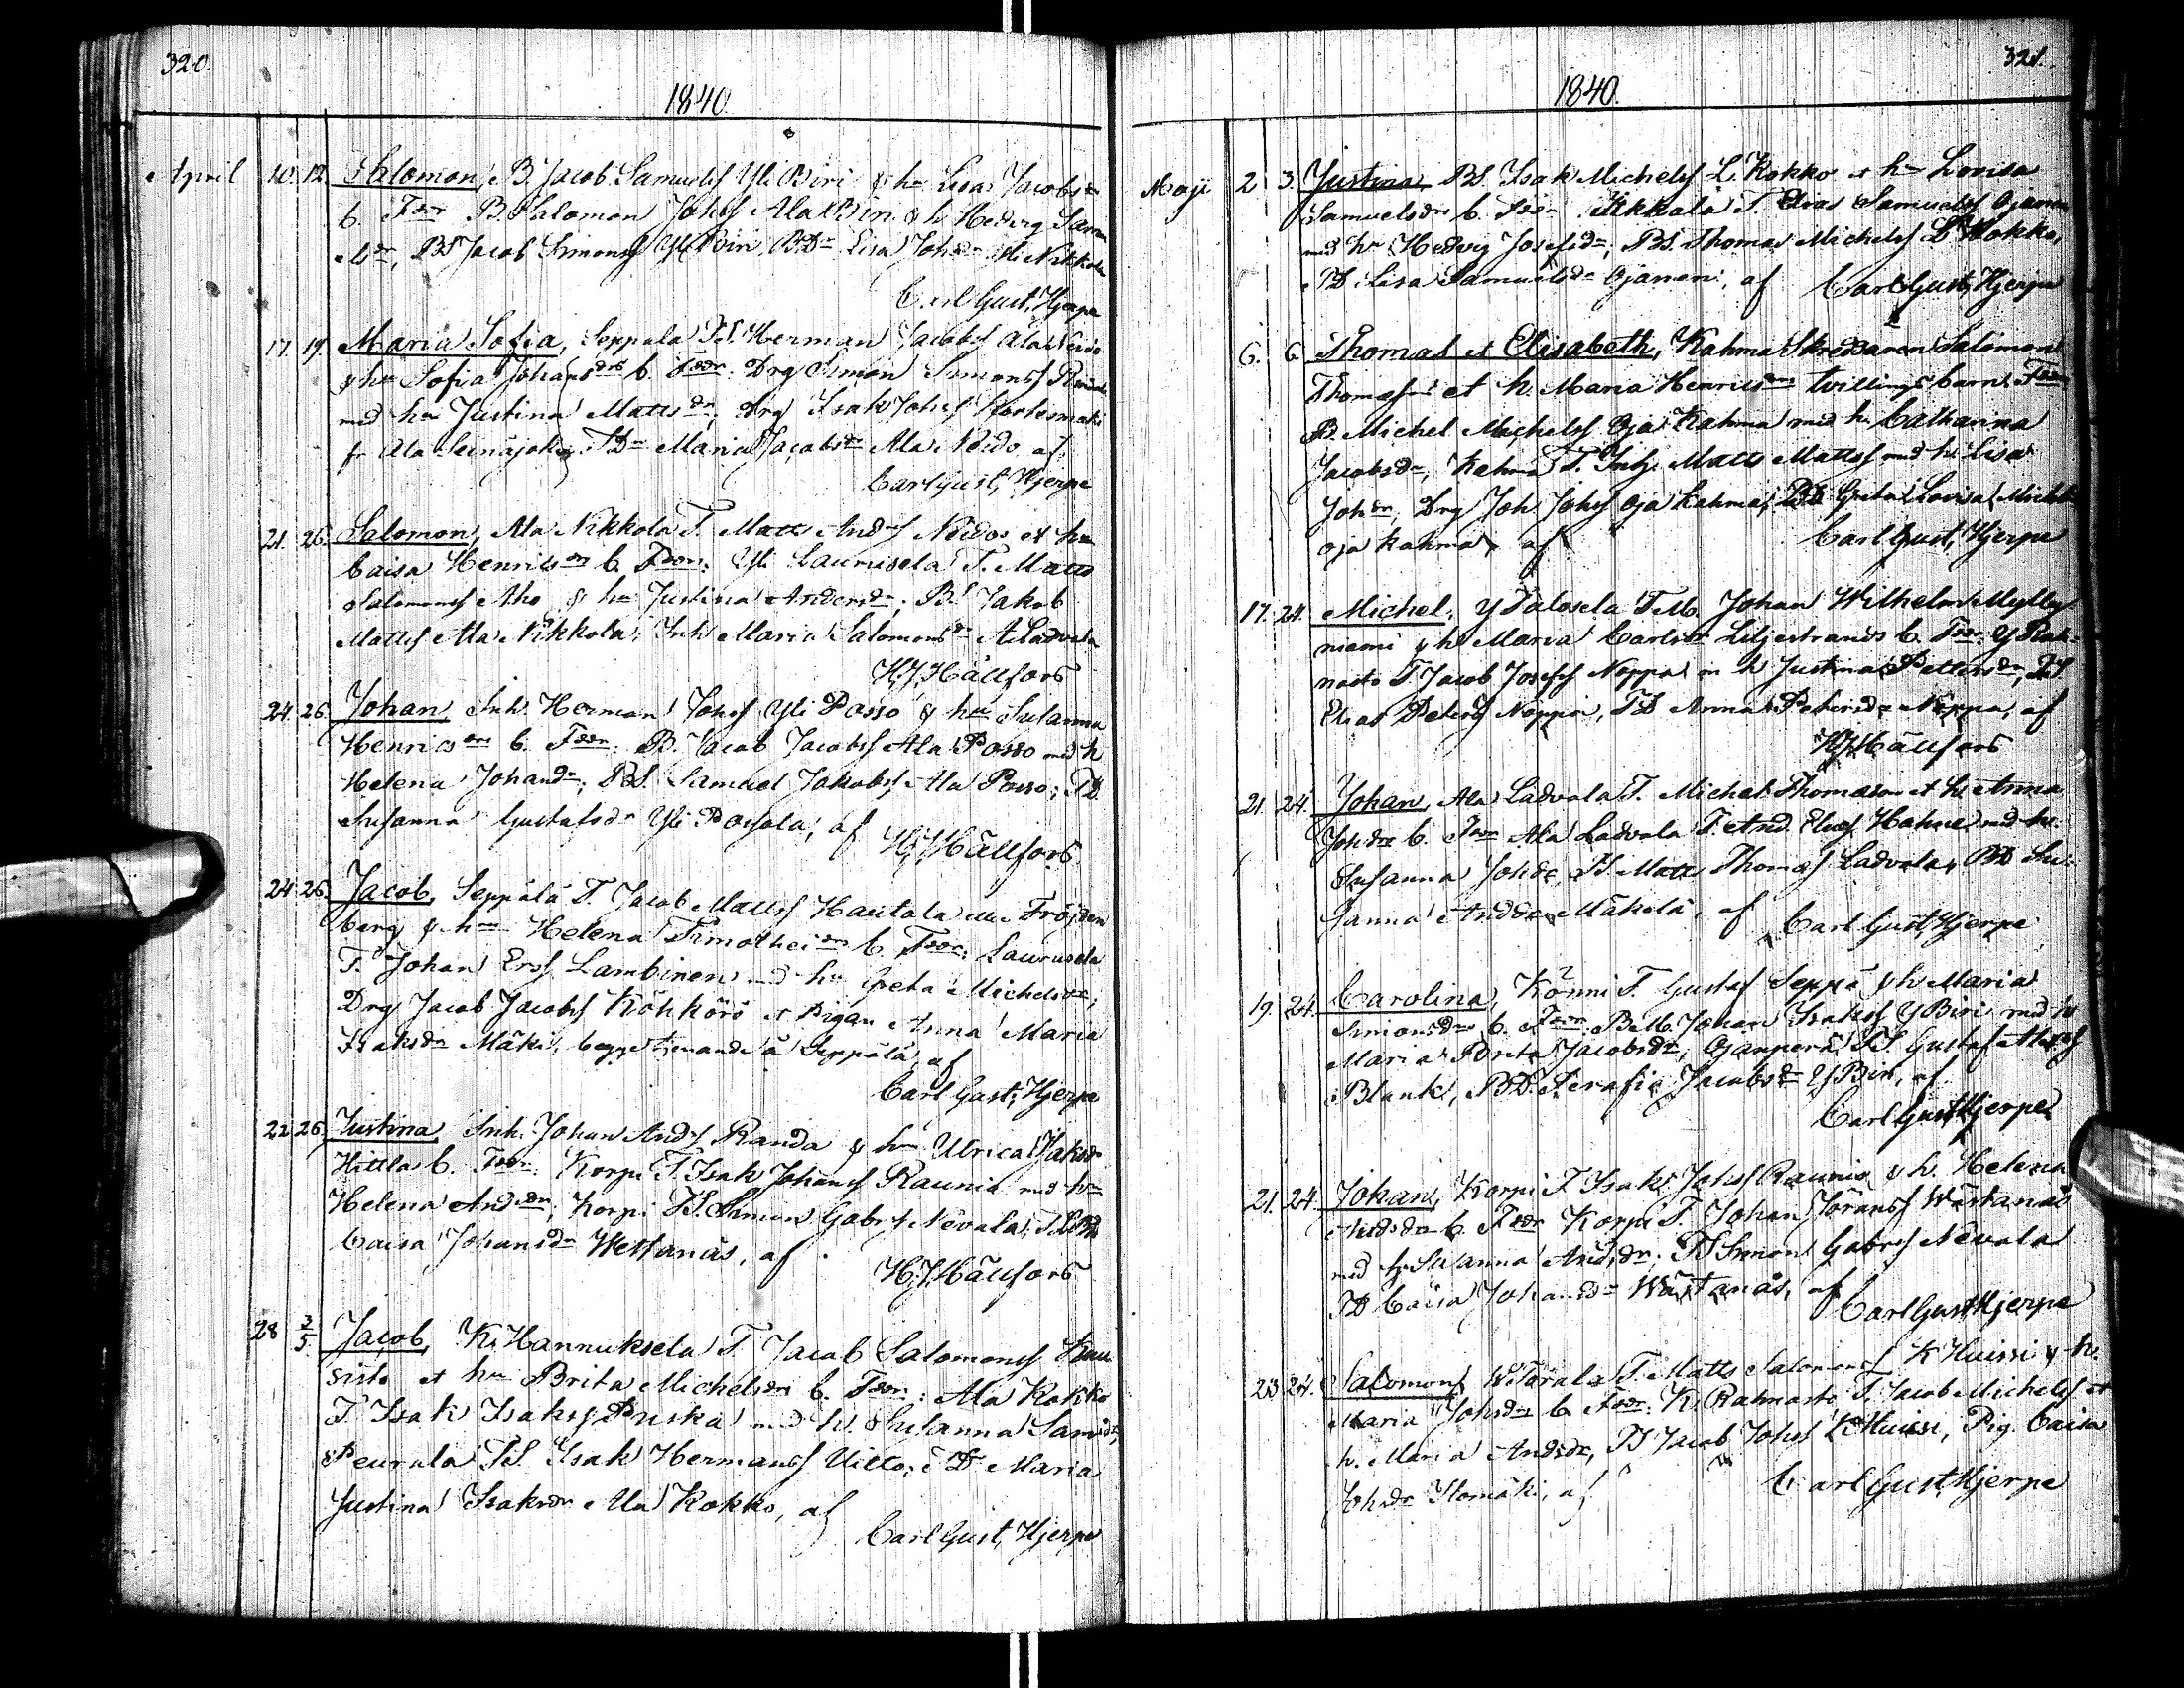 320.
1840
April 10. 12. Salomon, B. Jacob Samuelss Yli Biri & hu Lisa Jacobsdr
b. Fddr B. Salomon Johss Ala Biri & h Hedvig
BS Jacob Simonss Yli Biri, BDr Lisa Johsdr Yli Nikkola
Carl Gust. Hjerpe
17. 19. Maria Sofia, Seppälä TS. Herman Jacobss Ala Neiro
& hu Sofia Johansdrs b. Fddr: Drg Simon Simonss
med hu Justina Mattsdr, drg Isak Johss
fr Ala Seinäjoki, TDr Maria Jacobsdr Ala Neiro af
Carl Gust. Hjerpe
21. 26. Salomon, Ala Nikkola T. Matts Andss Neiro et hu
Caisa Henricsdrs b. Fddr: Yli Laurosela T. Matts
Salomonss Aho & hu Justina Andersdr; BS Jakob
Mattss Ala Nikkola; Inh Maria Salomonsdr A Ladvala
H. J. Hällfors
24. 26. Johan, Inh. Herman Johss Yli Posso & hu Susanna
Henricsdrs b. Fddr: B. Jacob Jacobss Ala Posso med h
Helena Johansdr; BS. Samuel Jakobss Ala Posso; TD.
Susanna Gustafsdr Yli Possola, af
H. J. Hällfors
24. 26. Jacob, Seppälä T. Jacob Mattss Hautala Fröjden
berg & hu Helena Timotheidrs b. Fddr: Laurosela
T. Johan Erss Lambinen med hu Greta Michelsdr;
Drg Jacob Jacobss Köhkörö et Pigan Anna Maria
Isaksdr Mäki, begge tjenande å Seppälä, af
Carl Gust. Hjerpe
22. 26. Justina Inh. Johan Andss Randa & hu Ulrica Isaksdr
Hittla b. Fddr: Korpi T. Isak Johanss Raunio med hu
Helena Andsdr; Korpi TS. Simon Gabrss Nevala;
Caisa Johansdr Westanäs, af
H. J. Hällfors
28 3/5 Jacob, K. Hannuksela T. Jacob Salomonss Kau
sisto et hu Brita Michelsdrs b. Fddr: Ala Kokko
T. Isak Isakss Puska med h. Susanna Samsdr,
Peurala TS. Isak Hermanss Uitto, TD Maria
Justina Isaksdr Ala Kokko, af
Carl Gust. Hjerpe
321.
1840.
Maji 2 3. Justina, BS. Isak Michelss L. Kokko et hu Lovisa
Samuelsdrs b. Fddr Nikkola T. Elias Samuelss Ojanen
med hu Hedvig Josefsdr, BS. Thomas Michelss L Kokko,
TD Lisa Samuelsdr Ojanen, af
Carl Gust. Hjerpe
6. 6 Thomas et Elisabeth, Kahma Skreddaren Salomon
Thomassons et h. Maria Henricsdrs tvillingebarn. Fddr
B. Michel Michelss Oja Kahma med hu Catharina
Jacobsdr, Kahma T. Inh. Matts Mattss med h. Lisa
Johdr, Drg Joh Johss Oja Kahma, BD Greta Lovisa
Oja Kahma, af
Carl Gust. Hjerpe
17. 24. Michel, Y Jalosela TM. Johan Wilhelm Mylly
niemi & h. Maria Carlsdr Liljestrands b. Fddr: Y
T Jacob Josefss Noppa m h Justina Pettersdr, TS
Elias Peterss Noppa, TD Anna Petersdr Noppa, af
H. J. Hällfors
21. 24. Johan, Ala Ladvala T. Michel Thomason et h. Anna
Johdrs b. Fddr Ala Ladvala T. And. Eliess med hu
Susanna Johdr, TS. Matts Thomass Ladvala, BD Su-
sanna Andsdr Mäkelä, af
Carl Gust. Hjerpe
19. 24. Carolina, Könni T. Gustaf Seppä & h. Maria
Simonsdrs b. Fddr: BM. Johan Isakss Y Biri med h
Maria Brita Jacobsdr, Ojanperä TS. Gustaf
Blank, BD. Serafia Jacobsdr Y Biri, af
Carl Gust Hjerpe
21. 24. Johan, Korpi T Isak Johss Raunio & h. Helena
Andsdrs b. Fddr Korpi T. Johan Göranss Wästanäs
med h Susanna Andsdr, TS Simon Gabrss Nevala
TD Caisa Johansdr Wästanäs, af
Carl Gust Hjerpe
23. 24. Salomon, W. Tarala T. Matts Salomonss K Huissi & h.
Maria Johsdrs b. Fddr: K. T. Jacob Michelss et
h. Maria Andsdr, TS Jacob Johss K Huissi, Pig. Caisa
Johsdr Ilomäki, af
Carl Gust Hjerpe